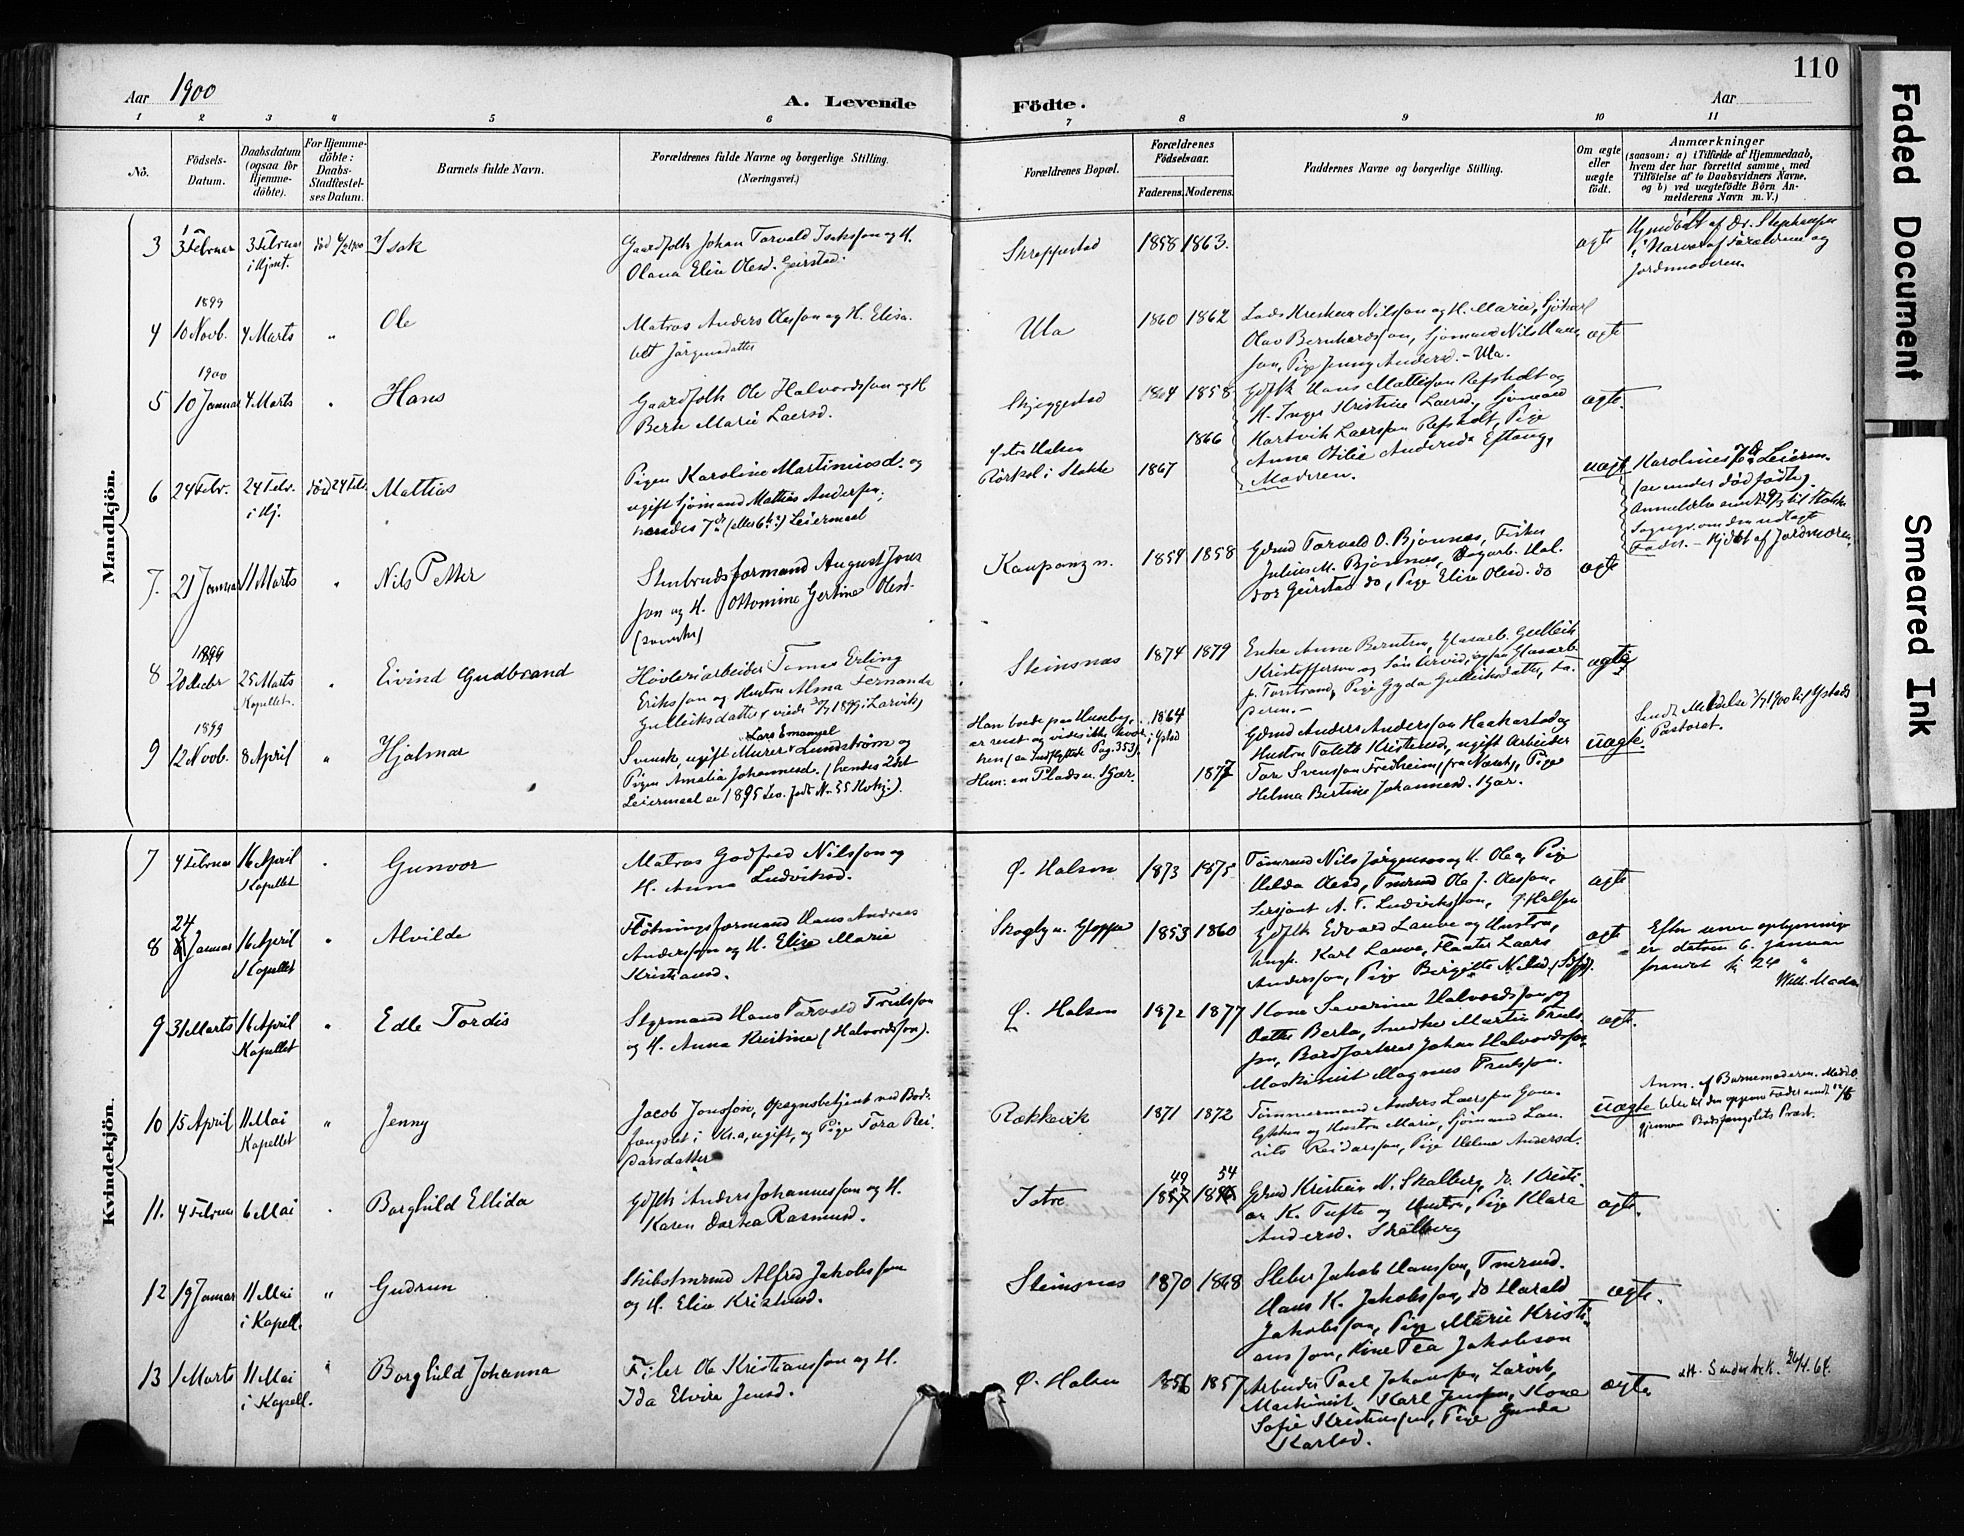 110
Aar 1900
A. Levende
Födte.
Aar
1 2 3 4 5 6 7 8 9 10 11
No.
Födsels-Datum.
Daabsdatum (ogsaa for Hjemmedöbte).
For Hjemmedöbte: Daabs-Stadfestelses Datum.
Barnets fulde Navn.
Forældrenes fulde Navne og borgerlige Stilling. (Næringsvei.)
Forældrenes Bopæl.
Forældrenes Födselsaar.
Faderens. Moderens.
Faddernes Navne og borgerlige Stilling.
Om ægte eller uægte födt.
Anmærkninger
(saasom: a) i Tilfælde af Hjemmedaab,
hvem der har forrettet samme, med
Tilföielse af to Daabsvidners Navne.
og b) ved uægtefödte Börn An-
melderens Navn m. V.)
Mandkjön.
3 3 Februar 3 Februar i Hjemt. död 4/2 1900 Isak
Gaardfolk Johan Torvald Isaksson og H.
Olava Elise Olesd. Geirstad.
Skreppestad 1858 1863. ægte
Jordmoderen.
1899
4 10 Novb. 4 Marts " Ole
Matros Anders Olesson og H. Elisa-
bet Jörgensdatter
Ula 1860 1862
Olav Bernhardsson, Sjömand Nils Hans-
son, Pige Jenny Andersd. - Ula.
ægte
1900
5 10 Januar 4 Marts " Hans
Gaardfolk Ole Halvordsson og H
Berte Marie Laersd.
Skjeggestad 1864 1858
Gdflk Hans Mattisson Refsholt og
H. Inger Kristine Laersd., Sjömand
Hartvik Laersson Refsholt, Pige
Anna Otilie Andersd. Eftang,
Moderen.
ægte.
6 24 Febr. 24 Febr. i Hj. död 24 Feb. Mattias
Pigen Karoline Martiniusd. og
ugift Sjömand Mattias Andersen;
hendes 7de (eller 6te?) Leiermaal
i Stokke 1867 1866
uægt
Karolines 7de Leierm.
(or under dödfödte).
Fader. - Hjdöbt af Jordmoren.
7. 21 Januar 11 Marts " Nils Petter
Stenbrudsformand August Jons
son og H. Ottomine Gertine Olesd.
(svenske)
Kaupang n. 1854 1858
Gdmd Torvald O. Bjönnes, Fisker
Julius M. Bjönnes, Dagarb. Hal-
dor Geirstad do, Pige Elise Olesd. do
ægte
1899
8 20 Decbr 25 Marts Kapellet. " Eivind Gudbrand
Hövleriarbeider Tomas Erling
Eriksson og Hustru Alma Fernanda
Gulleiksdatter, viede 3/9 1899 i Larvik)
Steinsnæs 1874 1879
Enke Anne Berntsen, Glasarb. Gulleik
Kristoffersen og Sön Arvid, ogsaa Glasarb.
p. Torstrand, Pige Gyda Gulleiksdatter, Fa-
deren. -
ægte
1899
9 12 Novb. 8 April " Hjalmar
Svensk, ugift Murer Lars Emanuel Lundström og
Pigen Amalia Johannesd. (hendes 2det
Leiermaal se 1895 Lev. födt No. 55 Kvkj.).
Han boede paa Huseby,
er reist og vides ikke hvor-
hen (se Indflyttede Pag. 353).
Hun: en Plads u. Kjær.
1864 i Ystad 1877
Gdmd Anders Andersson Haakestad og
Hustru Tolette Kristensd., ugift Arbeider
Tor Svensson Fredheim, fra Næsk, Pige
Helma Bertine Johannesd. Kjær.
uægte.
Sendt Meddelse 3/7 1900 til Ystads
Pastorat.
Kvindekjön.
7 4 Februar 16 April Kapellet " Gunvor
Matros Godfred Nilsson og
H. Anna Ludviksd.
Ø. Halsen 1873 1875
Tömmermd Nils Jörgensen og H. Olea, Pige
Hilda Olesd, Tmrmd Ole J. Olesson,
Sersjant A. T. Ludviksson, Ø. Halsen
ægte
8 24 Januar 16 April Kapellet " Alvilde
Flötningsformand Hans Andreas
Andersson og H. Elise Marie
Kristiansd.
Skogby u. Gloppe 1853 1860
Gdflk Edvard Lauve og Hustru,
Ungk. Karl Lauve, Fløater Laers
Andersson, Pige Birgitte Nilsd.
ægte
Efter
er datoen 6. januar
forandret til 24 "
9 31 Marts 16 April Kapellet " Edle Tordis
Styrmand Hans Torvald Trulsson
og H. Anna Kristina (Halvordsson).
Ø. Halsen 1872 1877
Kone Severine Halvordsson og
Datter Berta, Snedker Martin Truls-
son, Bordsorterer Johan Halvordsson,
Maskinist Magnus Trulsson.
ægte.
10 15 April 11 Mai Kapellet " Jenny
Jacob Jonsson, Opsynsbetjent ved Bods-
fængslet i Kr.a, ugift, og Pige Tora Rei-
darsdatter
Rækkevik 1871 1872
Tömmermand Anders Laersson Gon-
lykken og Hustru Marie, Sjömand Lau-
rits Reidarsson, Pige Helene Andersd.
uægte
Anm. af Barnemoderen. Medd-
gjennem Bodsfængslets Præst.
11. 4 Februar 6 Mai " Borghild Ellida
Gdflk Anders Johannesson og H.
Karen Dortea Rasmusd.
Istre 49 1857 54
Gdmd Kristian N. Skalberg, do Kristi-
an K. Tufte og Hustru, Pige Klara
Andersd. Skalberg
ægte.
12 19 Januar 11 Mai i Kapell. " Gudrun
Skibstmrmd Alfred Jakobsson
og H. Elise Kristensd.
Steinsnæs 1870 1868
Sleber Jakob Hansson, Tmrmd.
Hans K. Jakobsson, do Harald
Jakobsson, Pige Marie Kristi-
ansson, Kone Tea Jakobson
ægte.
13 1 Marts 11 Mai i Kapell. " Borghild Johanna
Filer Ole Kristiansson og H.
Ida Elvire Jensd.
Ø. Halsen 1856 1857
Arbeider Paul Johansson, Larvik,
Maskinist Karl Jensson, Kone
Sofie Kristensson, Pige Gunda
Karlsd.
ægte
utt. 26/4. 64.
Faded Document
Smeared Ink